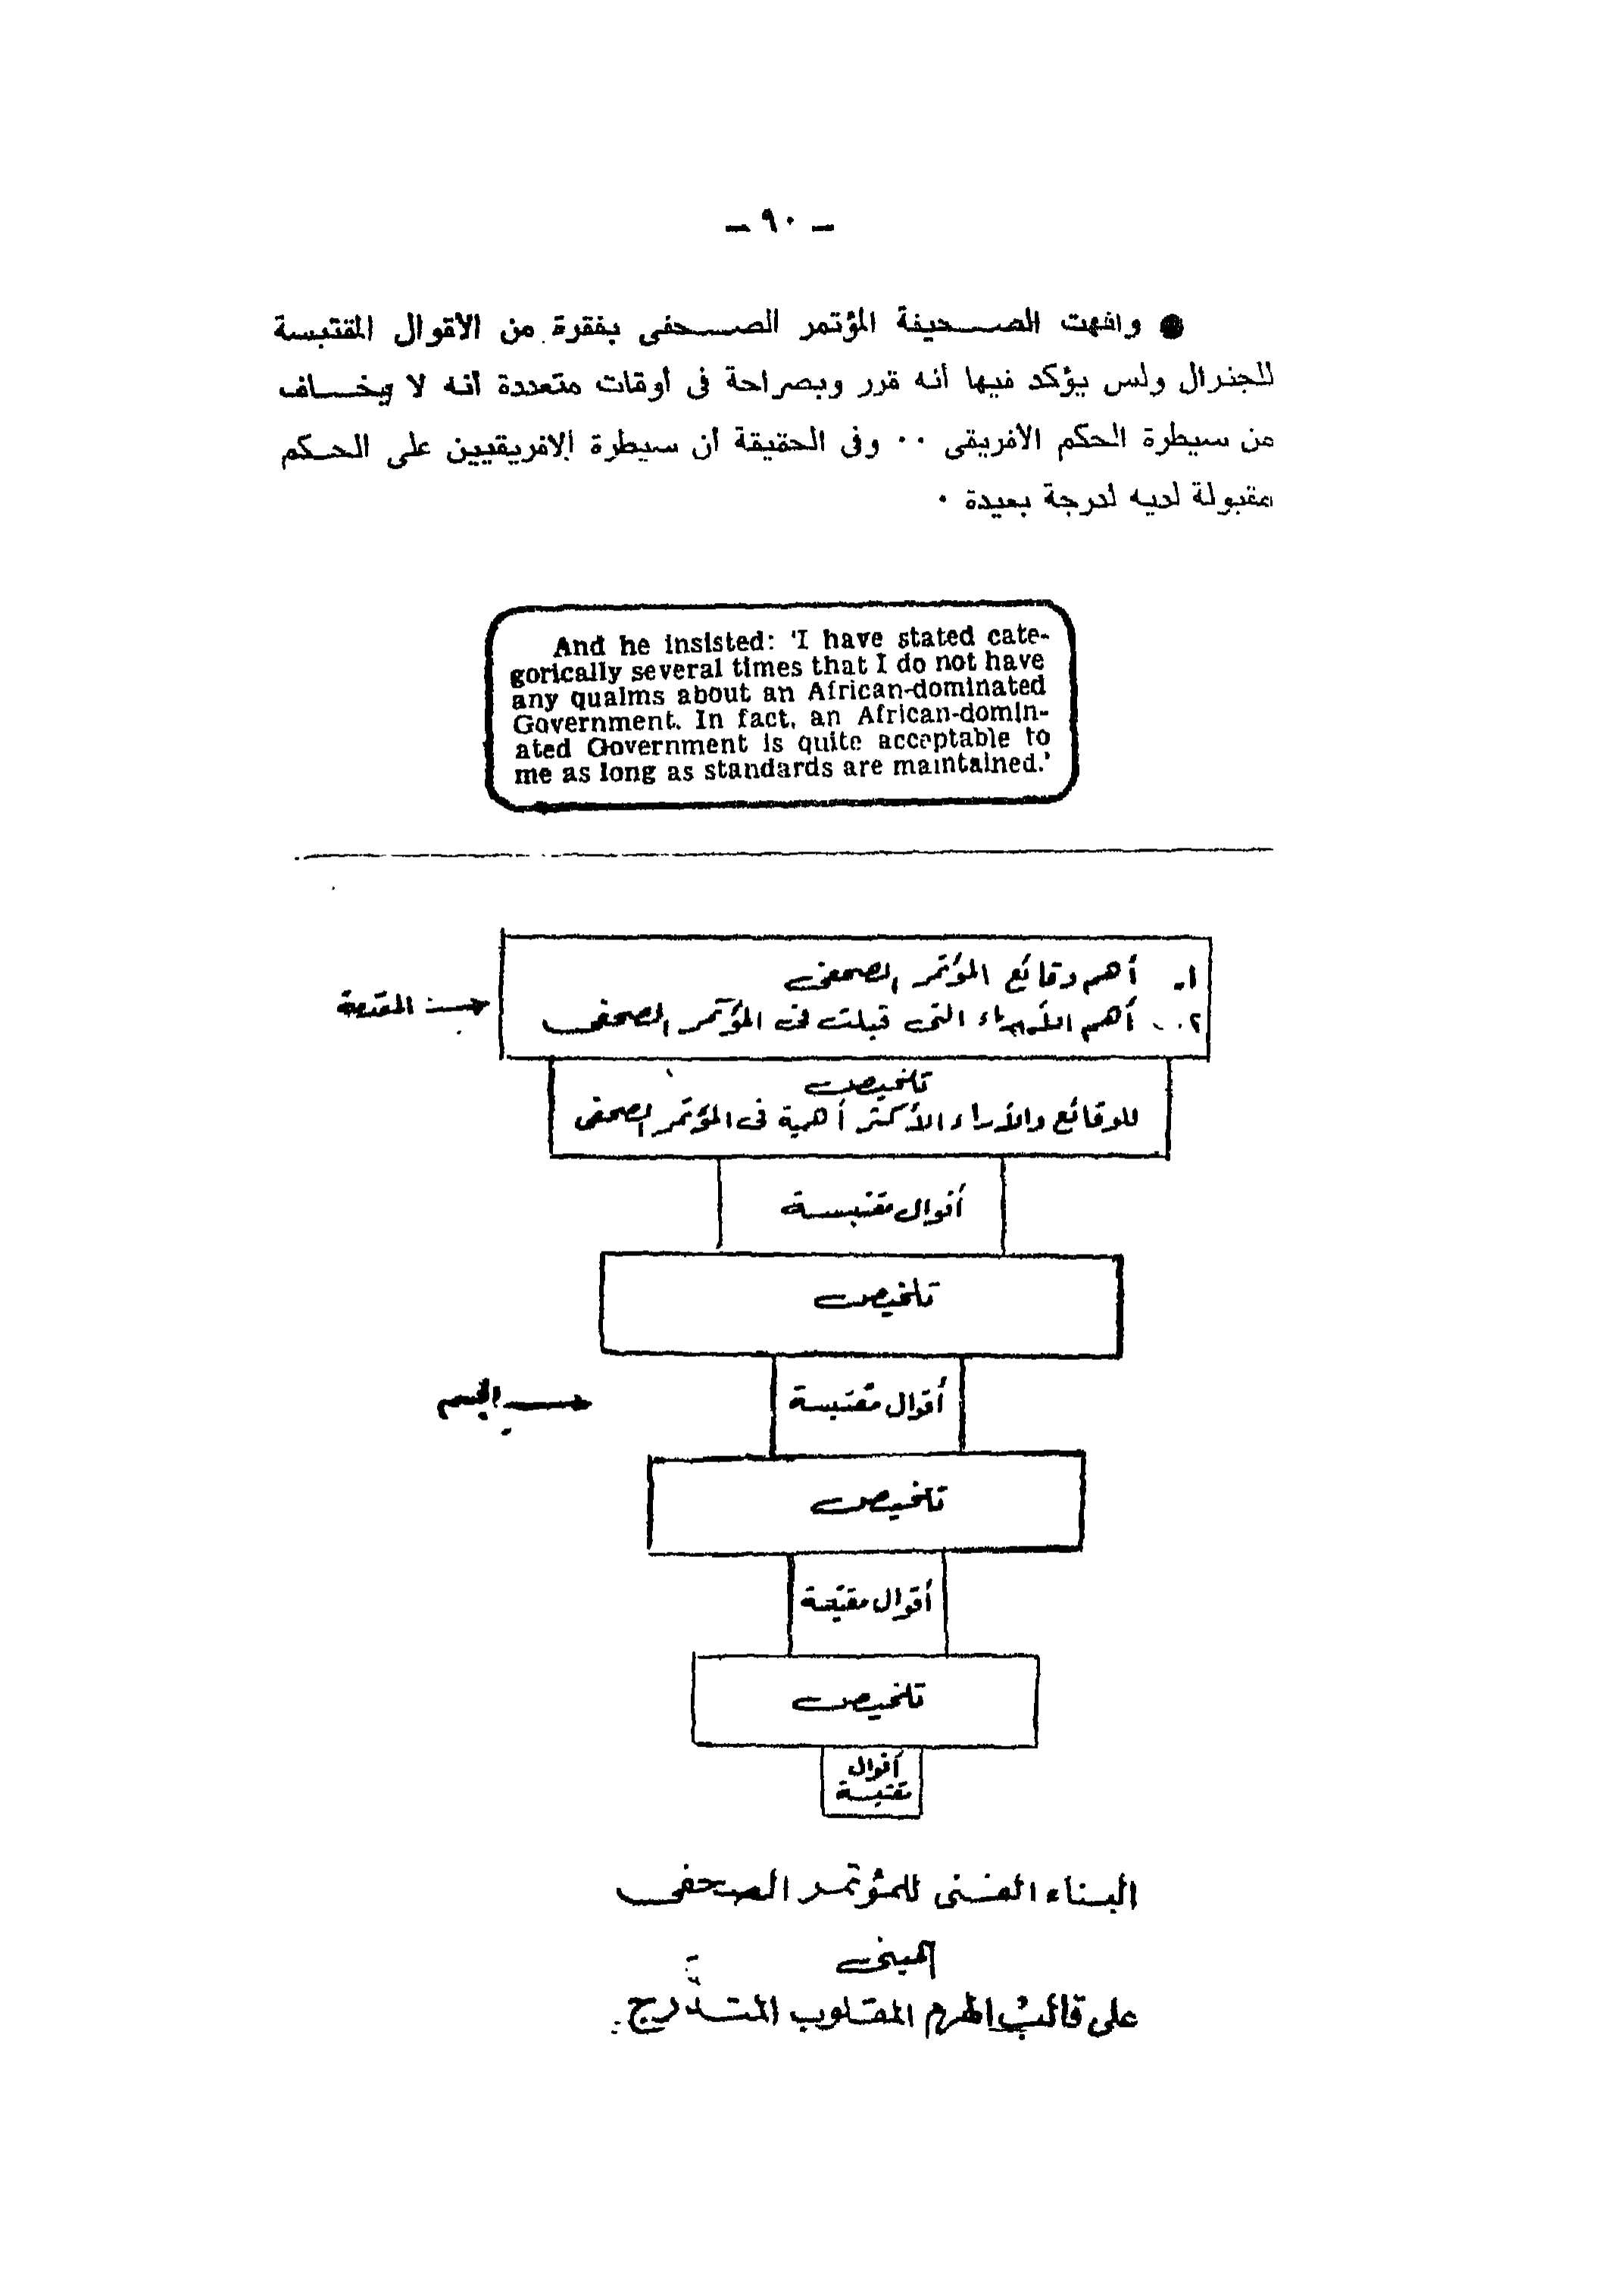 — ٩٠ —
● وانهت الصحيفة المؤتمر الصحفى بفقرة من الأقوال المقتبسة
للجنرال ولس يؤكد فيها أنه قرر وبصراحة فى أوقات متعددة أنه لا يخاف
من سيطرة الحكم الافريقى ٠٠ وفى الحقيقة أن سيطرة الافريقيين على الحكم
مقبولة لديه لدرجة بعيدة ٠
And he insisted: 'I have stated cate-
gorically several times that I do not have
any qualms about an African-dominated
Government. In fact, an African-domin-
ated Government is quite acceptable to
me as long as standards are maintained.'
١- أهم وقائع المؤتمر الصحفى
٢- أهم الآراء التى قيلت فى المؤتمر الصحفى
المقدمة
تلخيص
للوقائع والآراء الأكثر أهمية فى المؤتمر الصحفى
أقوال مقتبسة
تلخيص
أقوال مقتبسة
الجسم
تلخيص
أقوال مقتبسة
تلخيص
أقوال
مقتبسة
البناء الفنى للمؤتمر الصحفى
المبنى
على قالب الهرم المقلوب المتدرج